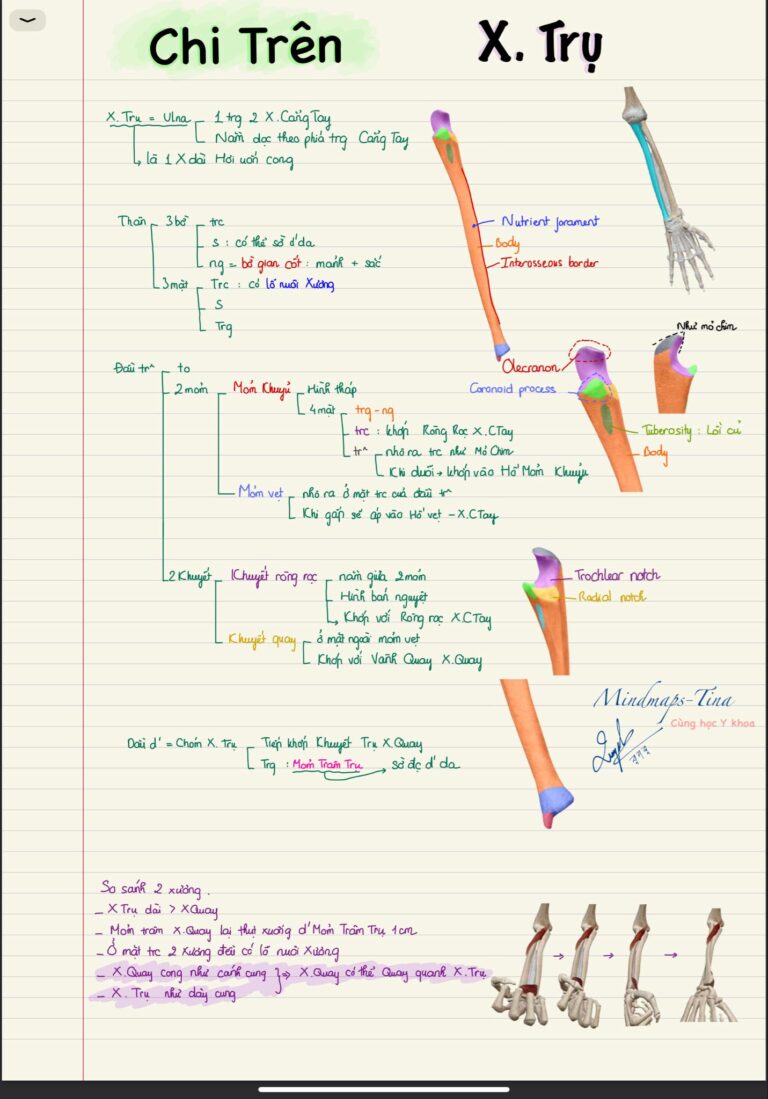 Chi Trên
X. Trụ
X. Trụ = Ulna
1 trg 2 X. Cẳng Tay
Nằm dọc theo phía trg Cẳng Tay
là 1 X dài Hơi uốn cong
Thân
3 bờ
trc
s : có thể sờ d' da
ng = bờ gian cốt : mảnh + sắc
3 mặt
Trc : có lỗ nuôi Xương
S
Trg
Nutrient forament
Body
Interosseous border
Đầu tr^
to
2 mỏm
Mỏm Khuỷu
Hình tháp
4 mặt
trg - ng
trc : khớp Ròng Rọc X.CTay
tr^
nhô ra trc như Mỏ Chim
Khi duỗi → khớp vào Hố Mỏm Khuỷu
Mỏm vẹt
nhô ra ở mặt trc của đầu tr^
Khi gấp sẽ áp vào Hố vẹt - X.CTay
Như mỏ chim
Olecranon
Coronoid process
Tuberosity : Lồi củ
Body
2 Khuyết
Khuyết ròng rọc
nằm giữa 2 mỏm
Hình bán nguyệt
Khớp với Ròng rọc X.CTay
Khuyết quay
ở mặt ngoài mỏm vẹt
Khớp với Vành Quay X.Quay
Trochlear notch
Radial notch
Mindmaps-Tina
Cùng học Y khoa
Đầu d' = Chỏm X. Trụ
Tiếp khớp Khuyết Trụ X.Quay
Trg : Mỏm Trâm Trụ → sờ đc d' da
So sánh 2 xương .
- X Trụ dài > X Quay
- Mỏm trâm X.Quay lại thụt xuống d' Mỏm Trâm Trụ 1cm
- Ở mặt trc 2 Xương đều có lỗ nuôi Xương
- X.Quay cong như cánh cung
- X. Trụ như dây cung
⇒ X.Quay có thể Quay quanh X.Trụ